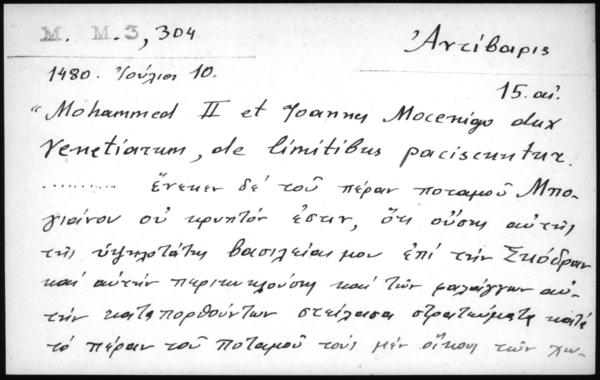 M. M. 3, 304
Ἀντίβαρις
1480. Ἰούλιος 10.
15. αἰ.
"Mohammed II et Joannes Mocenigo dux
Venetiarum, de limitibus paciscuntur.
.......... ἕνεκεν δὲ τοῦ πέραν ποταμοῦ Μπο-
γιάνου οὐ κρυπτόν ἐστιν, ὅτι οὔσης αὐτῆς
τῆς ὑψηλοτάτης βασιλείας μου ἐπὶ τὴν Σκόδραν
καὶ αὐτὴν περικυκλούσης καὶ τῶν φαλάγγων αὐ-
τὴν κατεπορθούντων στείλασα στρατεύματα κατὰ
τὸ πέραν τοῦ ποταμοῦ τοὺς μὲν οἴκους τῶν χω-